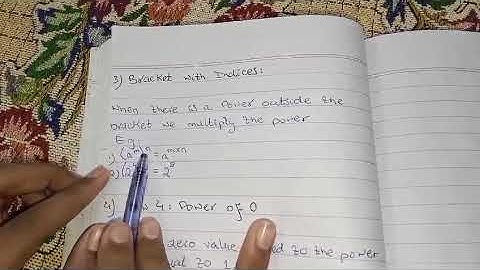 3) Bracket with Indices:
When there is a Power outside the
bracket we multiply the power
E g
1) (aᵐ)ⁿ = aᵐˣⁿ
2) (2 = 2
4) 4: Power of 0
zero value to the power
1